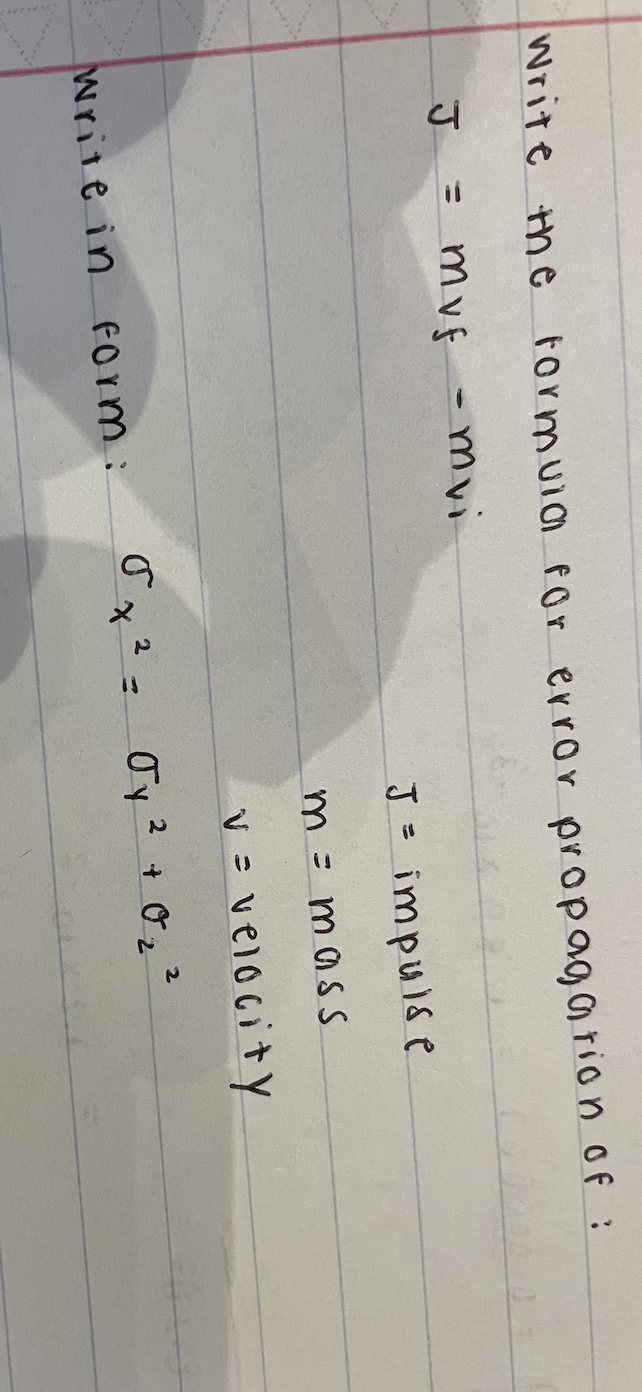 Write the formula for error propagation of:
J = mvf - mvi
J = impulse
m = mass
v = velocity
Write in form: σx² = σy² + σz²